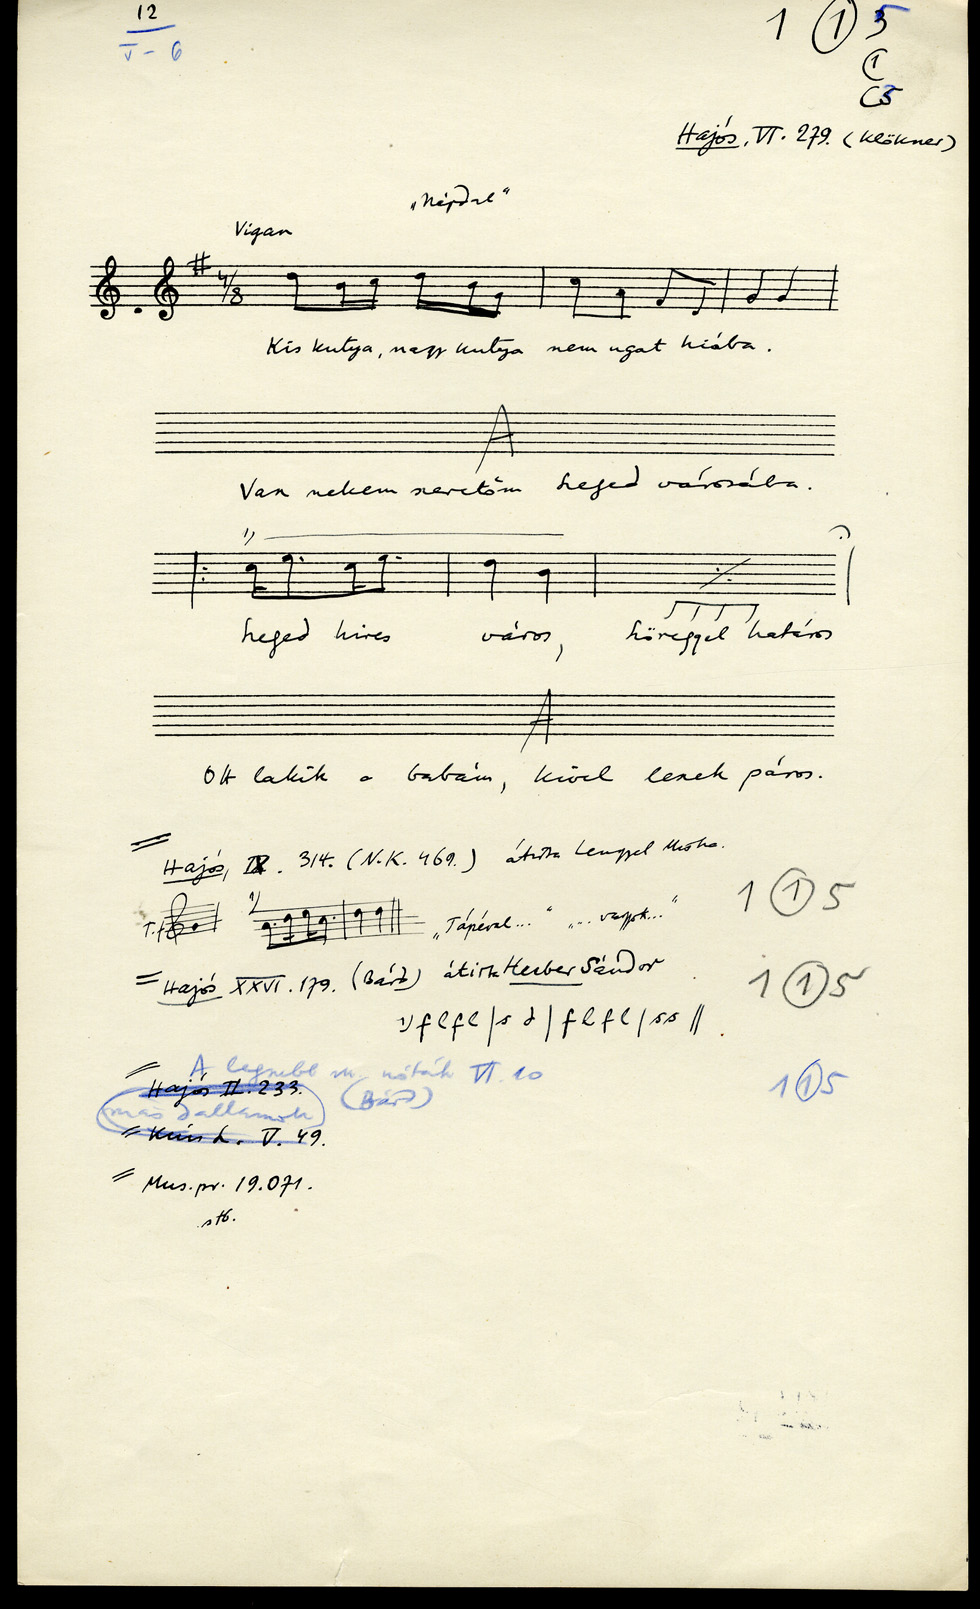 12
V - 6
1 ① 5
①
C5
Hajós, VI. 279. (Klökner)
„Népdal"
Vigan
4/8
Kis kutya, nagy kutya nem ugat hiába.
A
Van nekem szeretőm Szeged városába.
1)
Szeged hires város, Szöreggel határos
A
Ott lakik a babám, kivel leszek páros.
= Hajós, IX. 314. (N.K. 469.) átirta Lengyel Miska.
1 ① 5
T.f. 1) „Tápéval..." „... vagyok..."
= Hajós XXVI. 179. (Bárd) átirta Herber Sándor
1 ① 5
1) f l f l | s d | f l f l | s s ||
A legszebb m. nóták VI. 10
1 ① 5
= Hajós II. 233. (Bárd)
más dallamok
= Kún L. V. 49.
= Mus.pr. 19.071.
stb.